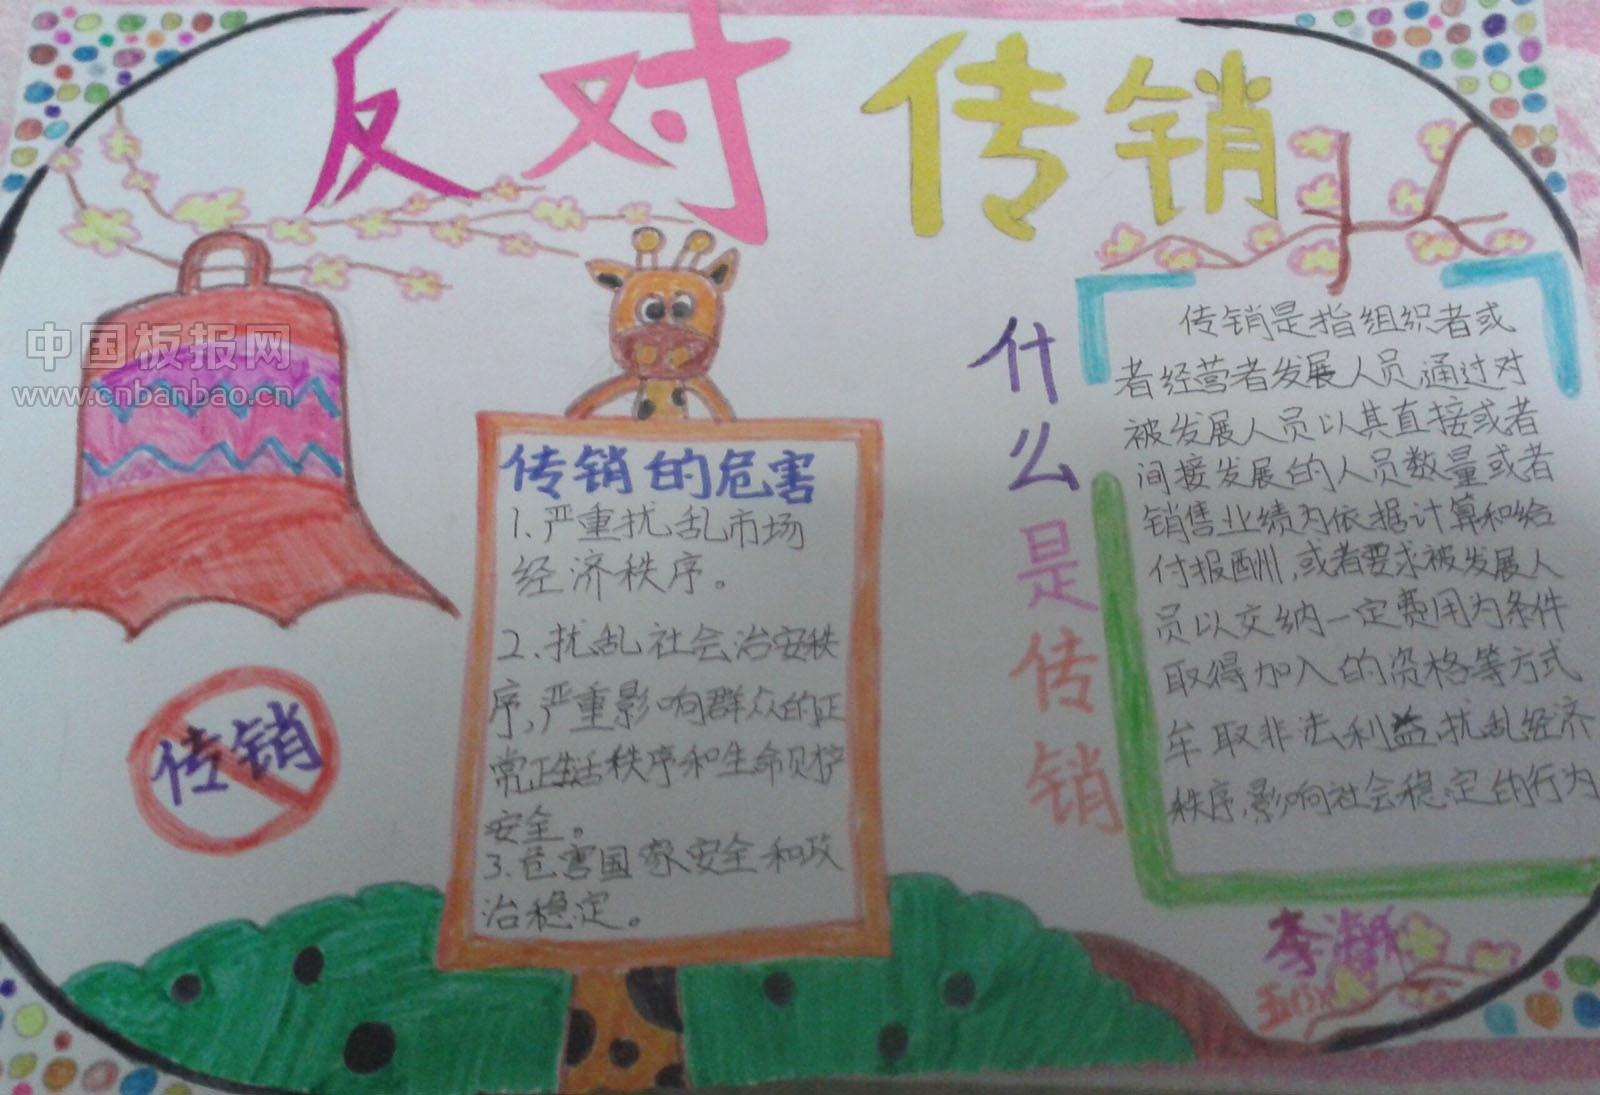 反对传销
中国板报网
www.cnbanbao.cn
传销的危害
1.严重扰乱市场
经济秩序。
2、扰乱社会治安秩
序,严重影响群众的正
常正生活秩序和生命财产
安全。
3.危害国家安全和政
治稳定。
传销
什么是传销
传销是指组织者或
者经营者发展人员,通过对
被发展人员以其直接或者
间接发展的人员数量或者
销售业绩为依据计算和给
付报酬,或者要求被发展人
员以交纳一定费用为条件
取得加入的资格等方式
牟取非法利益,扰乱经济
秩序,影响社会稳定的行为
李
五